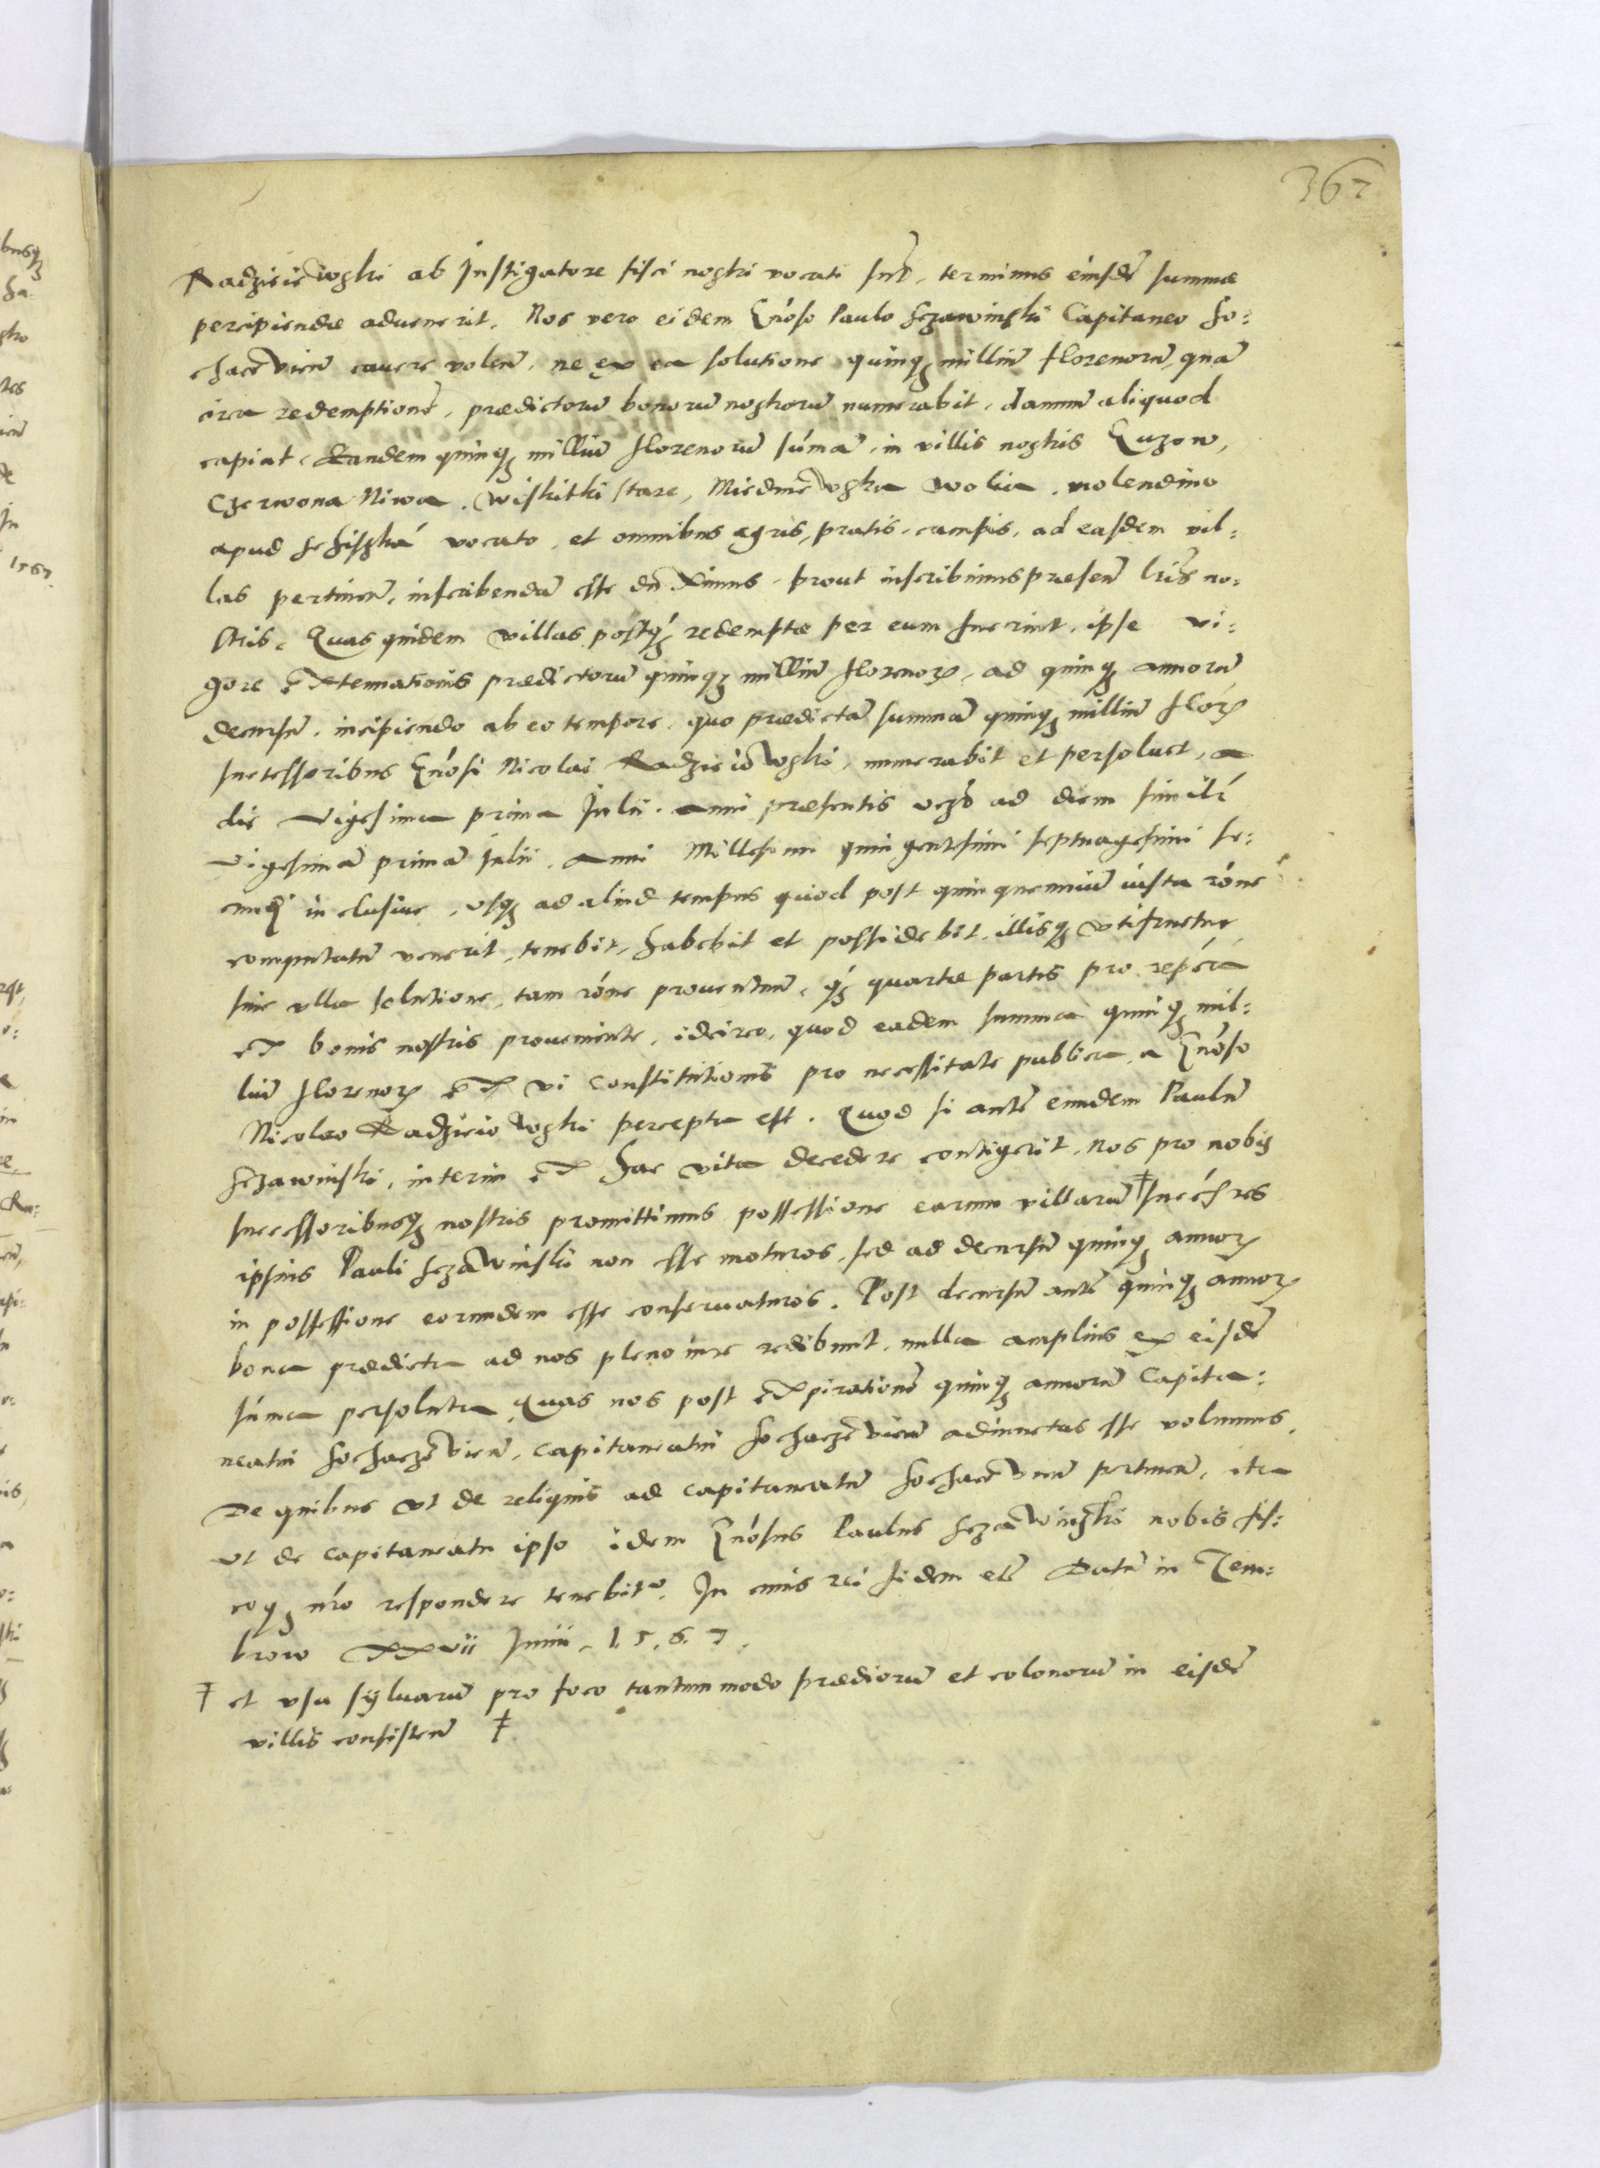 367
Radzieiewski ab Instigatore fisci nostri vocati sunt, terminus eiusdē summæ
percipiendæ aduenerit. Nos vero eidem Gnōso Paulo Sczawinski Capitaneo So:
chacevieñ cavere volentes, ne ex ea solutione quinq3 milliū florenorū, quā
circa redemptionē, prædictorū bonorū nostrorū numerabit, damnū aliquod
capiat, Eandem quinq3 milliū florenorū sūmā, in villis nostris Guzow,
Czerwona Niwa, Wiskitki stare, Miedniewska Wolia, molendino
apud vocato, et omnibus agris, pratis, campis, ad easdem vil:
las pertineñ, inscribendā esse duximus, prout inscribimus præseñ lris no:
stris. Quas quidem villas postq3 redemptæ per eum fuerint, ipse vi:
gore extenuationis prædictorū quinq3 milliū florenor, ad quinq3 annorū
decursū, incipiendo ab eo tempore, quo prædictā summā quinq3 milliū flor
successoribus Gnōsi Nicolai Radzieiowski, numerabit et persoluet, a
die vigesima prima Julii anni præsentis vsq3 ad diem similē
vigesimā primā Julii anni Millesimi quingentesimi septuagesimi se:
cundi inclusiue, vsq3 ad aliud tempus quod post quinquenniū iusta rōne
computatū venerit, tenebit, habebit et possidebit, illisq3 vtifruetur
sine vlla solutione, tam rōne prouentuū, q3 quartæ partis pro
ex bonis nostris proueniente, idcirco, quod eadem summa quinq3 mil:
liū florenor ex vi constitutionis pro necessitate publica a Gnōso
Nicolao Radzieiowski percepta est. Quod si autē eundem Paulū
Sczawinski, interim ex hac vita decedere contigerit, nos pro nobis
successoribusq3 nostris promittimus possessione earum villarū ‡ succēres
ipsius Pauli Sczawinski non esse moturos, sed ad decursū quinq3 annor
in possessione eorundem esse conseruaturos. Post decursū autē quinq3 annor
bona prædicta ad nos pleno iure redibunt, nulla amplius ex eisdē
sūma persoluta Quas nos post expirationē quinq3 annorū Capita:
neatui Sochaczevieñ, capitaneatui Sochaczevieñ adiunctas esse volumus.
De quibus vt de reliquis ad capitaneatū Sochaceviñ pertineñ, ita
vt de capitaneatu ipso idem Gnōsus Paulus Sczawinski nobis fis:
coq3 nr̄o respondere tenebit. In cuius rei fidem etc̄ Datū in Zem:
brow XXvii Junii. 1.5.6.7.
‡ et vsu syluarū pro foco tantummodo prædiorū et colonorū in eisdē
villis consisteñ ‡